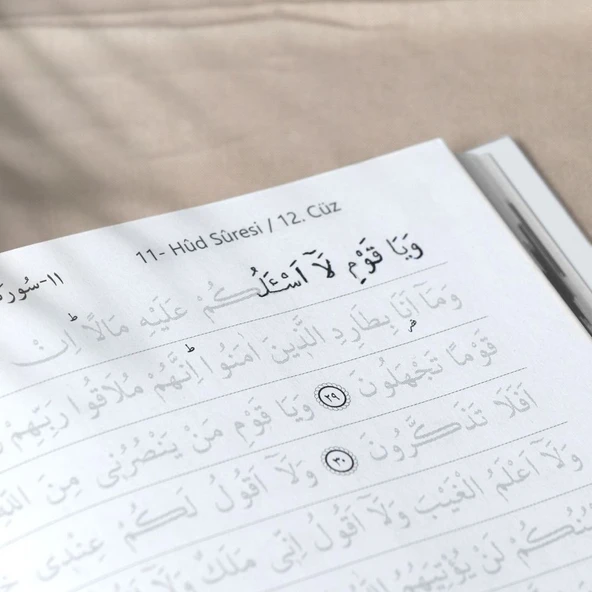 11- Hûd Sûresi / 12. Cüz
١١-سُورَة
وَيَا قَوْمِ لَٓا اَسْـَٔلُكُمْ عَلَيْهِ مَالًا اِنْ
وَمَٓا اَنَا۬ بِطَارِدِ الَّذ۪ينَ اٰمَنُوا اِنَّهُمْ مُلَاقُوا رَبِّهِمْ
قَوْمًا تَجْهَلُونَ ٢٩ وَيَا قَوْمِ مَنْ يَنْصُرُن۪ي مِنَ اللّٰهِ
اَفَلَا تَذَكَّرُونَ ٣٠ وَلَٓا اَقُولُ لَكُمْ عِنْد۪ي
وَلَٓا اَعْلَمُ الْغَيْبَ وَلَٓا اَقُولُ اِنّ۪ي مَلَكٌ وَلَٓا
لَنْ يُؤْتِيَهُمُ